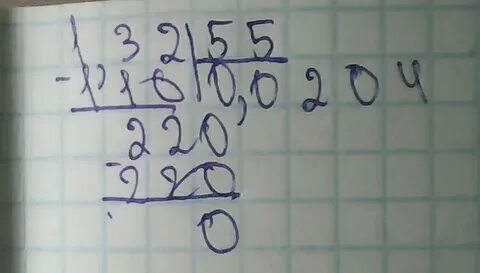 132|55
-110|0,0204
220
-220
0